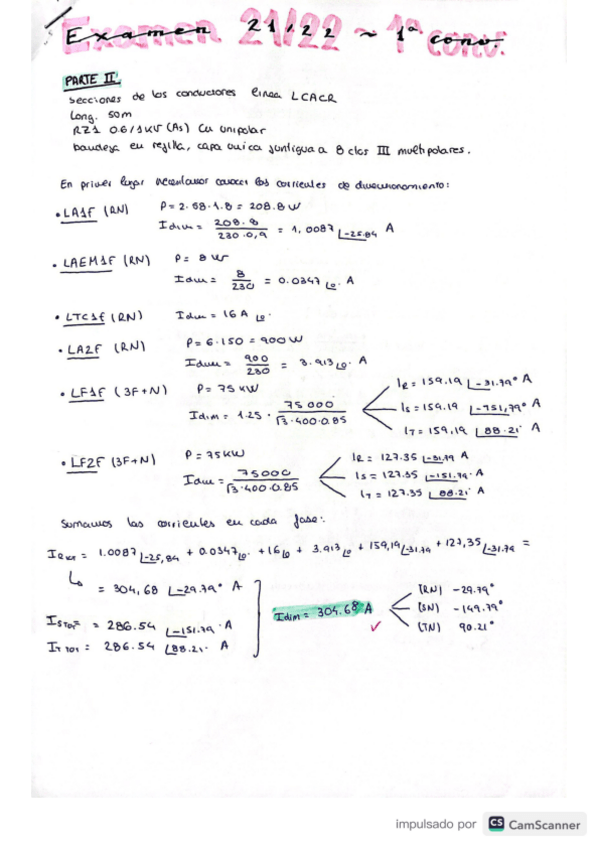 Examen 21/22 ~ 1ª conv.
PARTE II
secciones de los conductores linea LCACR
Long. 50m
RZ1 0.6/1KV (As) Cu unipolar
bandeja en rejilla, capa única contigua a 8 ctos III multipolares.
En primer lugar necesitamos conocer las corrientes de dimensionamiento:
• LA1F (RN) P= 2·58·1.8 = 208.8 W
Idim = 208.8 / 230·0,9 = 1,0087 ∟-25.84 A
• LAEM1F (RN) P= 8 W
Idim = 8 / 230 = 0.0347 ∟0° A
• LTC1F (RN) Idim = 16 A ∟0°
• LA2F (RN) P= 6·150 = 900 W
Idim = 900 / 230 = 3.913 ∟0° A
• LF1F (3F+N) P= 75 KW IR = 159.19 ∟-31.79° A
Idim = 1.25 · 75000 / √3·400·0.85 IS = 159.19 ∟-151,79° A
IT = 159,19 ∟88.21° A
• LF2F (3F+N) P= 75KW IR = 127.35 ∟-31.79 A
Idim = 75000 / √3·400·0.85 IS = 127.35 ∟-151.79° A
IT = 127.35 ∟88.21° A
Sumamos las corrientes en cada fase:
IRtot = 1.0087∟-25,84 + 0.0347∟0 + 16∟0 + 3.913∟0 + 159,19∟-31.79 + 127,35∟-31.79 =
↳ = 304,68 ∟-29.79° A
Idim = 304.68 A (RN) -29.79°
(SN) -149.79°
(TN) 90.21°
ISTOT = 286.54 ∟-151.79° A
IT TOT = 286.54 ∟88.21° A
impulsado por CS CamScanner